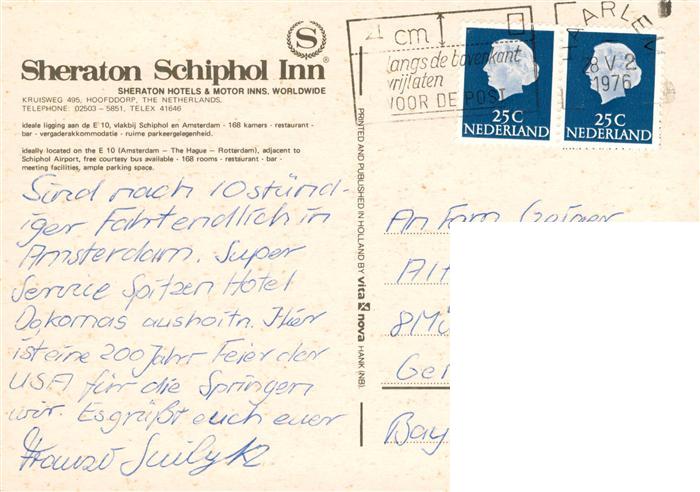 S
Sheraton Schiphol Inn®
SHERATON HOTELS & MOTOR INNS, WORLDWIDE
KRUISWEG 495, HOOFDDORP, THE NETHERLANDS.
TELEPHONE: 02503 – 5851, TELEX 41646
ideale ligging aan de E'10, vlakbij Schiphol en Amsterdam · 168 kamers · restaurant ·
bar · vergaderakkommodatie · ruime parkeergelegenheid.
ideally located on the E 10 (Amsterdam – The Hague – Rotterdam), adjacent to
Schiphol Airport, free courtesy bus available · 168 rooms · restaurant · bar ·
meeting facilities, ample parking space.
Sind nach 10 stünd-
iger Fahrt endlich in
Amsterdam. Super
Service Spitzen Hotel
Hier
ist eine 200 Jahr Feier der
USA für die Springen
wir. Es grüßt euch euer
PRINTED AND PUBLISHED IN HOLLAND BY vita nova HANK (NB).
cm
langs de bovenkant
vrijlaten
VOOR DE POST
HAARLEM
1976
25C
NEDERLAND
25C
NEDERLAND
An Fam.
Alt
8Mü
Ger
Bay